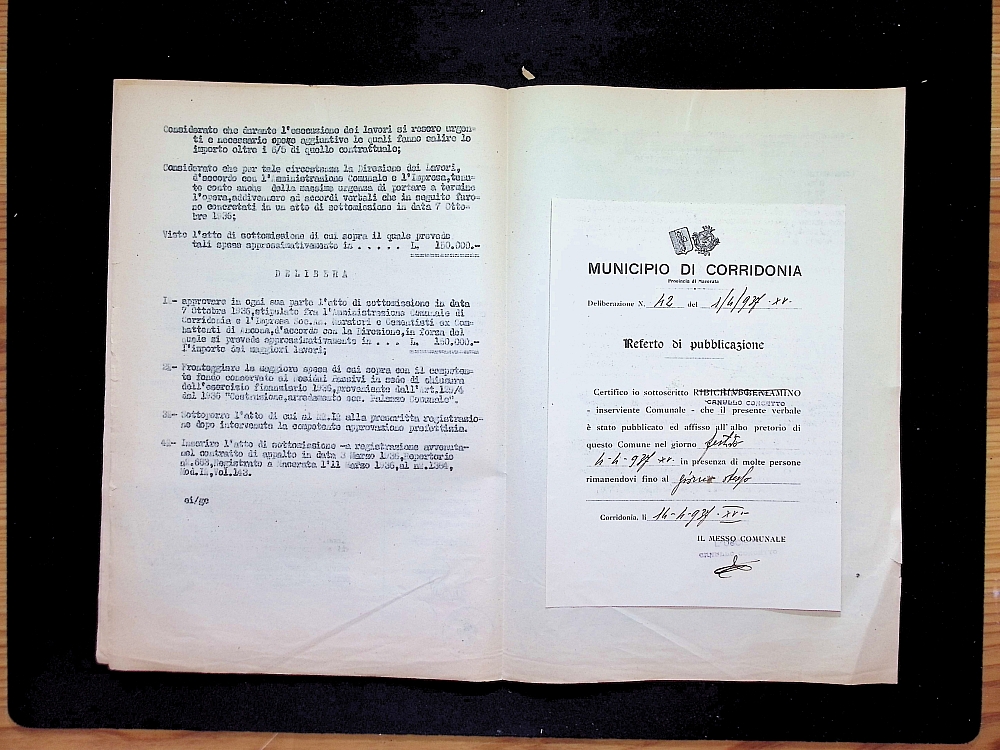 Considerato che durante l'esecuzione dei lavori si resero urgen-
ti e necessarie spese aggiuntive le quali fanno salire lo
importo oltre i 6/5 di quello contrattuale;
Considerato che per tale circostanza la Direzione dei Lavori,
d'accordo con l'Amministrazione Comunale e l'Impresa,tenu-
to conto anche della massima urgenza di portare a termine
l'opera,addivennero ad accordi verbali che in seguito furo-
no concretati in un atto di sottomissione in data 7 Otto-
bre 1936;
Visto l'atto di sottomissione di cui sopra il quale prevede
tali spese approssimativamente in . . . . . L. 150.000.-
D E L I B E R A
1°- approvare in ogni sua parte l'atto di sottomissione in data
7 Ottobre 1936,stipulato fra l'Amministrazione Comunale di
Corridonia e l'Impresa Soc.An. Muratori e Cementisti ex Com-
battenti di Ancona,d'accordo con la Direzione,in forza del
quale si prevede approssimativamente in . . . L. 150.000.-
l'importo dei maggiori lavori;
2°- Fronteggiare la maggiore spesa di cui sopra con il competen-
te fondo conservato ai Residui Passivi in sede di chiusura
dell'esercizio finanziario 1936,proveniente dall'Art.
del 1936 "Costruzione,arredamento ecc. Palazzo Comunale".
3°- Sottoporre l'atto di cui al N°.1° alla prescritta registrazio-
ne dopo intervenuta la competente approvazione prefettizia.
4°- Inscrivere l'atto di sottomissione -a registrazione avvenuta-
nel contratto di appalto in data 3 Marzo 1936,Repertorio
N°.663,Registrato a Macerata l'11 Marzo 1936,al N°.1364,
Mod.1°,Vol.143.
ei/gc
MUNICIPIO DI CORRIDONIA
Provincia di Macerata
Deliberazione N. 42 del 1/4/937-XV-
Referto di pubblicazione
Certifico io sottoscritto RIBICHINI BENIAMINO
CANULLO CONCETTO
- inserviente Comunale - che il presente verbale
è stato pubblicato ed affisso all'albo pretorio di
questo Comune nel giorno festivo
4-4-937 XV in presenza di molte persone
rimanendovi fino al giorno stesso
Corridonia, li 14-4-937-XV-
IL MESSO COMUNALE